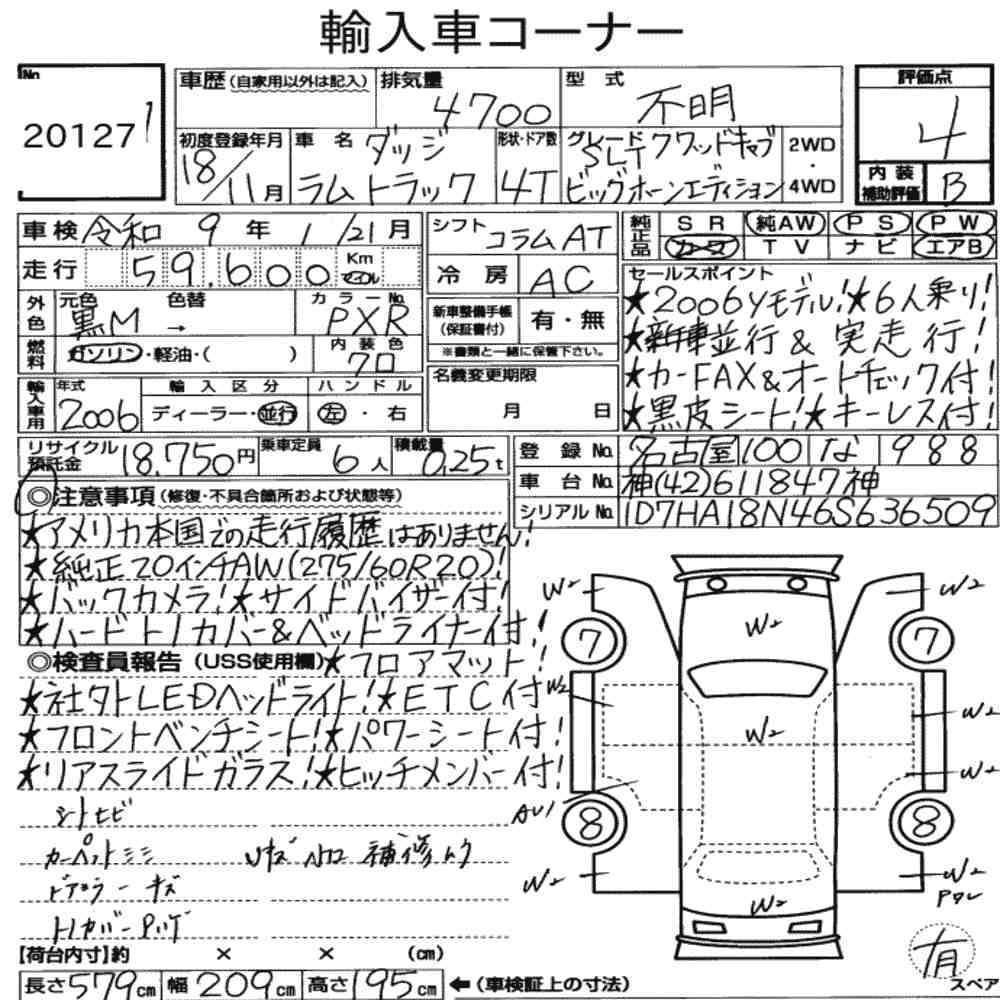 輸入車コーナー
No 20127 1
車歴(自家用以外は記入) 排気量 4700 型式 不明 評価点 4
初度登録年月 18/11月 車名 ダッジ ラムトラック 形状・ドア数 4T グレード SLTクワッドキャブ ビッグホーンエディション 2WD・4WD 内装補助評価 B
車検 令和 9年 1/21月 シフト コラムAT 純正品 SR 純AW PS PW
走行 59,600 Km マイル 冷房 AC カーステ TV ナビ エアB
外色 元色 黒M 色替 → カラーNo. PXR 新車整備手帳(保証書付) 有・無 ※書類と一緒に保管下さい。
燃料 ガソリン・軽油・( ) 内装色 クロ
輸入車用 年式 2006 輸入区分 ディーラー・並行 ハンドル 左・右 名義変更期限 月 日
セールスポイント
★2006yモデル!★6人乗り!
★新車並行&実走行!
★カーFAX&オートチェック付!
★黒皮シート!★キーレス付!
リサイクル預託金 18,750円 乗車定員 6人 積載量 0.25t
登録No. 名古屋 100 な 988
車台No. 神(42)611847神
シリアルNo. 1D7HA18N46S636509
◎注意事項(修復・不具合箇所および状態等)
★アメリカ本国での走行履歴はありません!
★純正20インチAW(275/60R20)!
★バックカメラ!★サイドバイザー付!
★ハードトノカバー&ベッドライナー付!
◎検査員報告(USS使用欄)★フロアマット!
★社外LEDヘッドライト!★ETC付
★フロントベンチシート!★パワーシート付!
★リアスライドガラス!★ヒッチメンバー付!
シートヒビ
カーペットシミ
ドアミラーキズ
W2 W2
W2
7 7
W2
W2
W2
W2
AU1
8 8
W2 W2
W2
【荷台内寸】約 × × (cm)
長さ579cm 幅209cm 高さ195cm ←(車検証上の寸法)
有
スペア